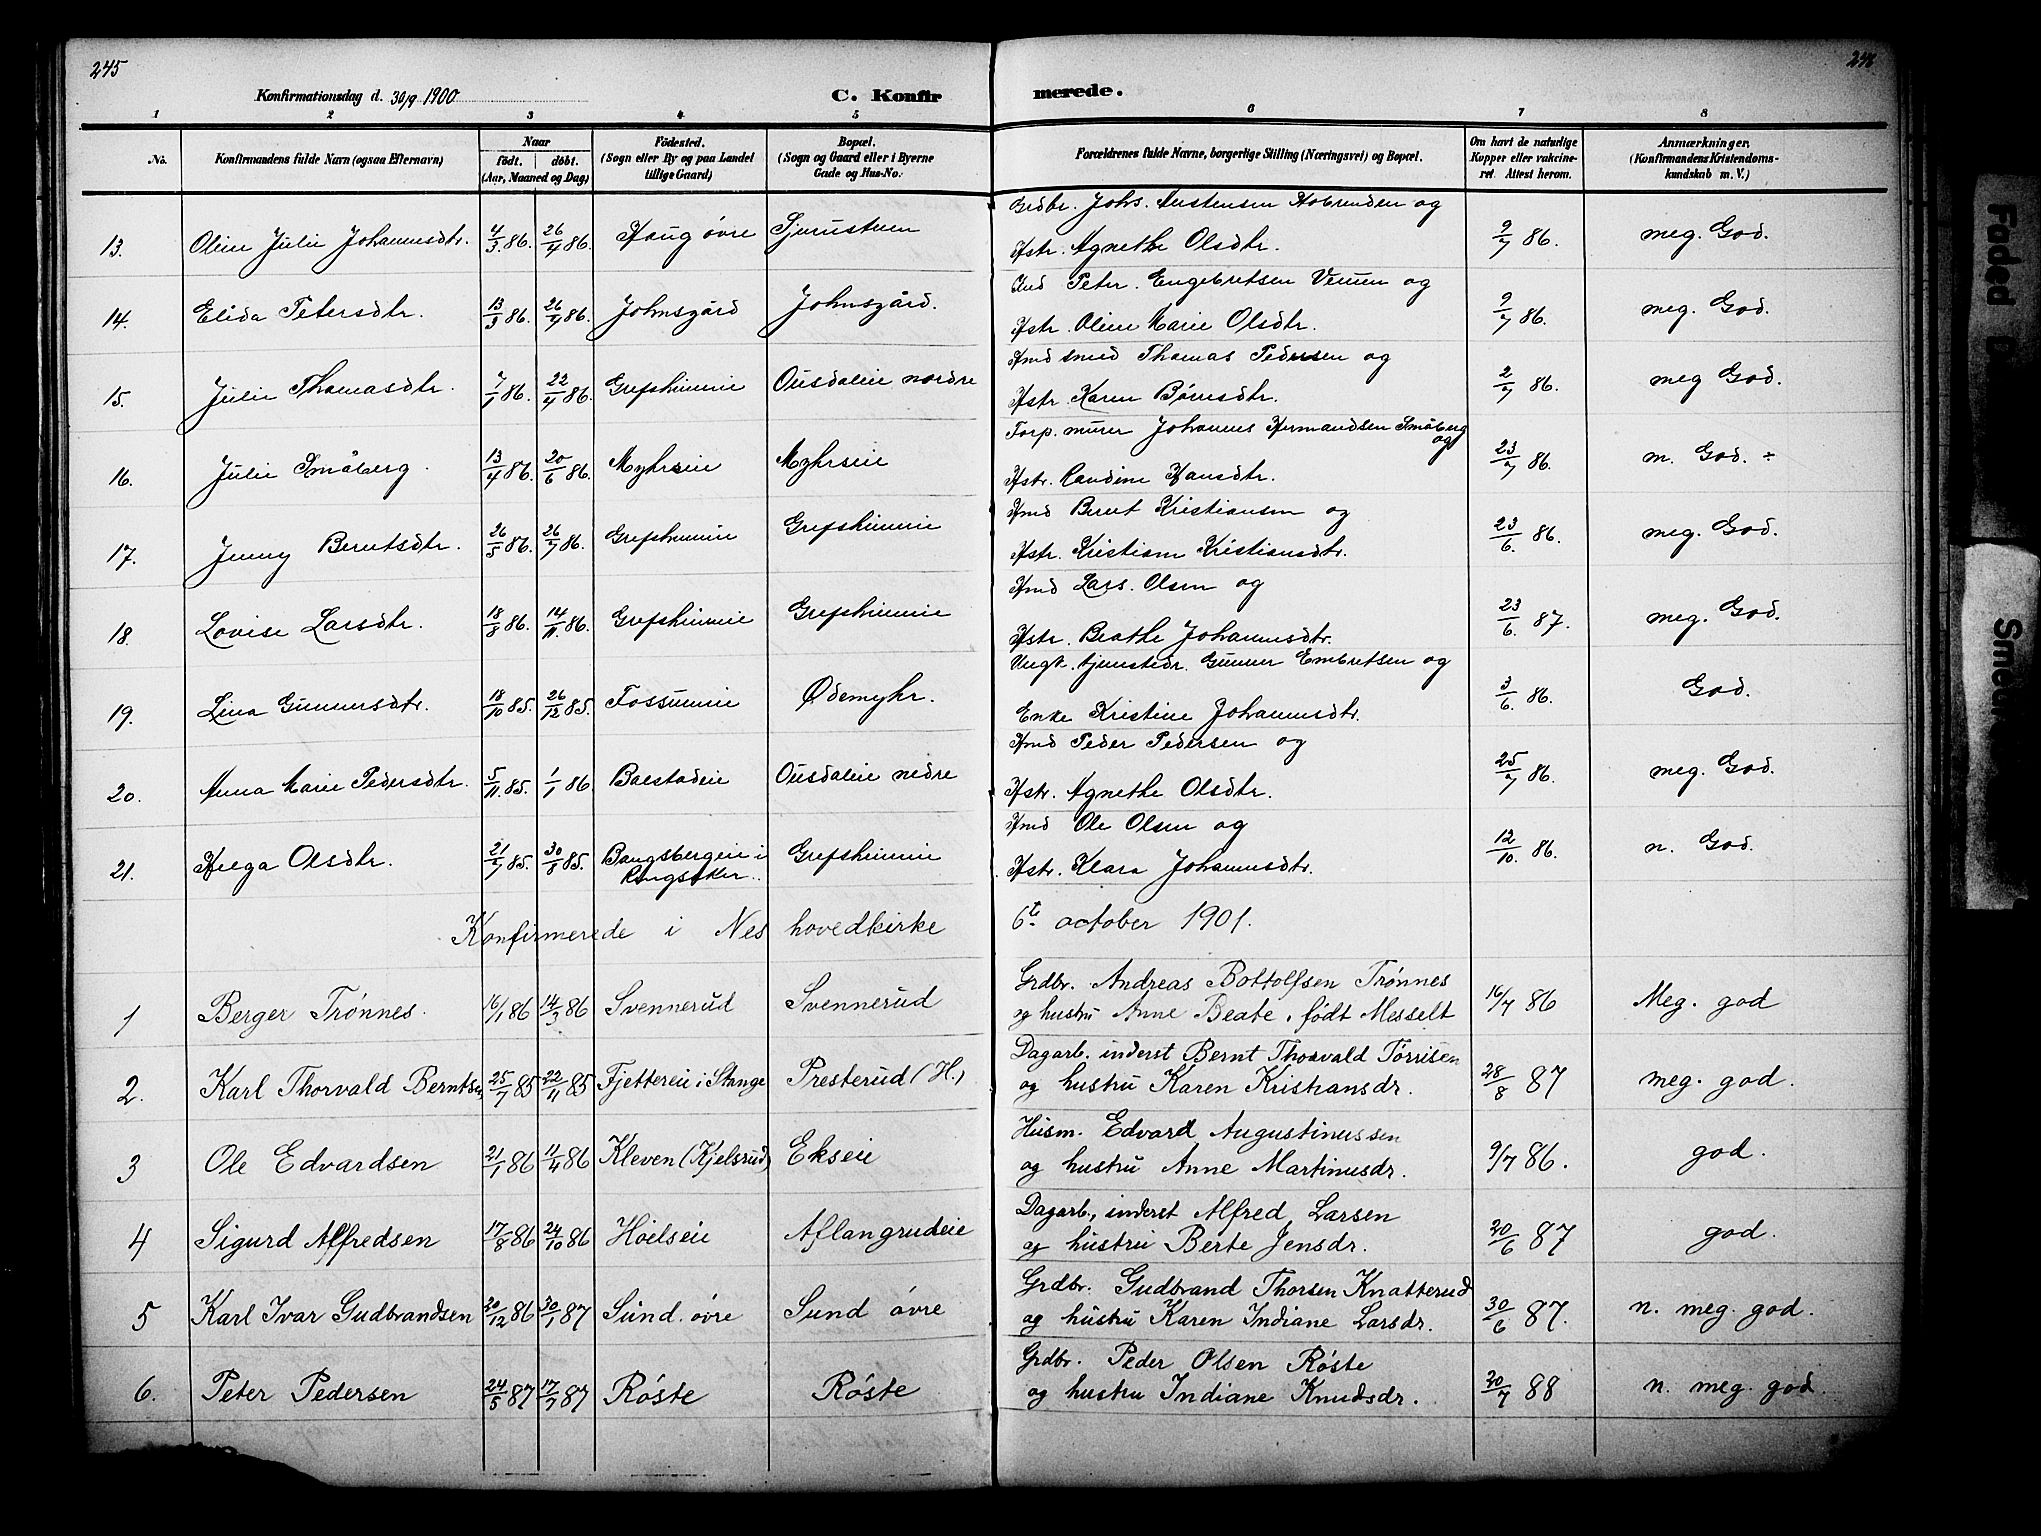 245
246
Konfirmationsdag d. 30/9 1900
C. Konfirmerede.
1 2 3 4 5 6 7 8
No.
Konfirmandens fulde Navn (ogsaa Efternavn)
Naar
født. døbt.
(Aar, Maaned og Dag)
Fødested.
(Sogn eller By og paa Landet
tillige Gaard)
Bopæl.
(Sogn og Gaard eller i Byerne
Gade og Hus-No.
Forældrenes fulde Navne, borgerlige Stilling (Næringsvei) og Bopæl.
Om havt de naturlige
Kopper eller vakcine-
ret. Attest herom.
Anmærkninger.
(Konfirmandens Kristendoms-
kundskab m. V.)
13. Oline Julie Johannesdtr. 4/3 86. 26/4 86. Haug øvre Gdbr. Johs. Austensen og Hstr. Agnethe Olsdtr. 9/7 86. meg. God.
14. Elida Petersdtr. 13/3 86. 26/4 86. Johnsgård Johnsgård. Ind Peter Engebretsen og Hstr. Oline Marie Olsdtr. 9/7 86. meg. God.
15. Julie Thomasdtr. 7/1 86. 22/4 86. Grefsheimeie Ousdaleie nordre Hmd smed Thomas Pedersen og Hstr. Karen Børnesdtr. 2/7 86. meg God.
16. Julie Småberg. 13/4 86. 20/6 86. Myhrseie Myhrseie Torp. murer Johannes Hermandsen Småberg og Hstr. Randine Hansdtr. 23/7 86. m. God. ÷
17. Jenny Berntsdtr. 26/5 86. 26/7 86. Grefsheimeie Grefsheimeie Hmd Bernt Kristiansen og Hstr. Kristiane Kristiansdtr. 23/6. 86. meg. God.
18. Lovise Larsdtr. 18/8 86. 14/11 86. Grefsheimeie Grefsheimeie Hmd Lars. Olsen og Hstr. Beathe Johannesdtr. 23/6. 87. meg. God.
19. Lina Gunnersdtr. 18/10 85. 26/12 85. Fossumeie Ødemyhr. Ungk. tjenstedr. Gunner Embretsen og Enke Kristine Johannesdtr. 3/6. 86. God.
20. Anna Marie Pedersdtr. 5/11. 85. 1/1 86 Balstadeie Ousdaleie nedre Hmd Peder Pedersen og Hstr. Agnethe Olsdtr. 25/7 86. meg. God.
21. Helga Olsdtr. 21/7 85. 30/8 85. Bangsbergeie i Ringsaker.. Grefsheimeie Hmd Ole Olsen og Hstr. Klara Johannesdtr. 12/10. 86. n. God.
Konfirmerede i Nes hovedkirke 6te october 1901.
1 Berger Trønnes. 16/1 86 14/3 86 Svennerud Svennerud Grdbr. Andreas Bottolfsen Trønnes og hustru Anne Beate, født Messelt 16/7 86 Meg. god
2. Karl Thorvald Berntsen 25/7 85 22/11 85 Fjettereie i Stange Presterud (H.) Dagarb. inderst Bernt Thorvald Tørrisen og hustru Karen Kristiansdr. 28/8 87 meg. god.
3 Ole Edvardsen 21/1 86 11/4 86 Kleven (Kjelsrud) Ekseie Husm. Edvard Augustinussen og hustru Anne Martinusdr. 9/7 86. god.
4 Sigurd Alfredsen 17/8 86 24/10 86 Hoelseie Aflangrudeie Dagarb., inderst Alfred Larsen og hustru Berte Jensdr. 20/6 87 god.
5 Karl Ivar Gudbrandsen 20/12 86 30/1 87 Sund. øvre Sund øvre Grdbr. Gudbrand Thorsen Knatterud og hustru Karen Indiane Larsdr. 30/6 87. n. meg. god.
6. Peter Pedersen 24/5 87 17/7 87 Røste Røste Grdbr. Peder Olsen Røste og hustru Indiane Knudsdr. 20/7 88 n. meg. god.
Faded